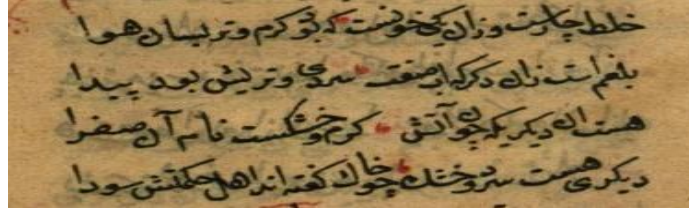 خلط چارست و زان یکی خونست که بود کرم و تر بسان هوا
بلغم است زان دکر که از صفت سردی و تریش بود پیدا
هست ان دیکر یکه چون آتش کرم و خشکست نام آن صفرا
دیکری هست سرد و خشک چو خاک کفته اند اهل حکمتش سودا